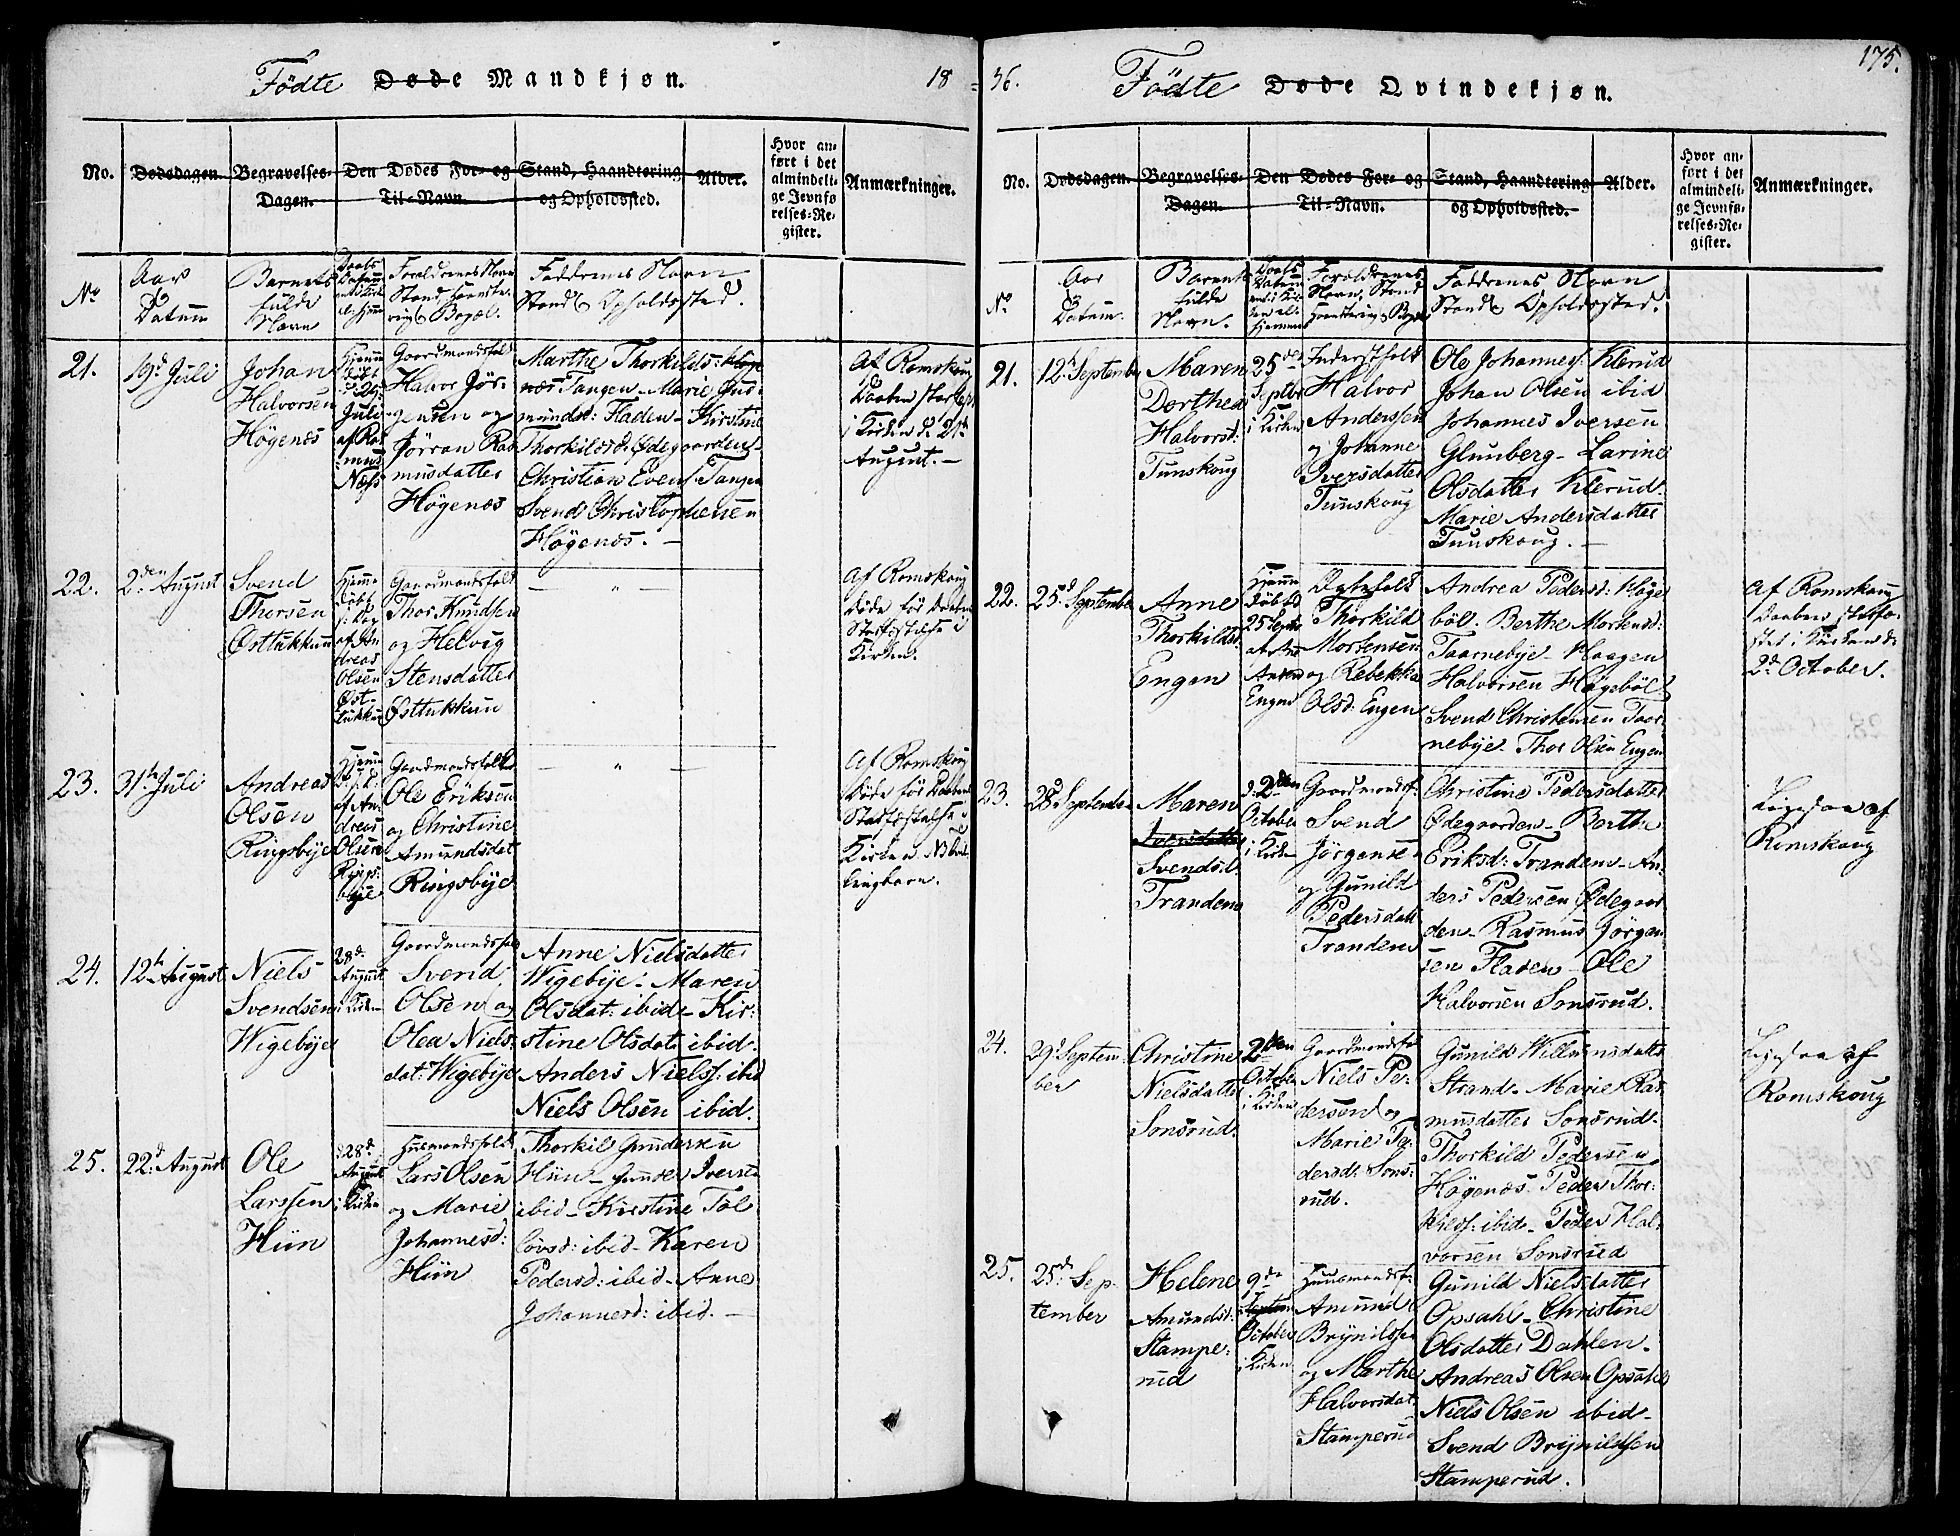 Fødte Døde Mandkjøn.
18
No.
Dødsdagen.
Begravelses-
Dagen.
Den Dødes For- og
Til-Navn.
Stand, Haandtering
og Opholdssted.
Alder.
Hvor an-
ført i det
almindeli-
ge Jevnfø-
relses-Re-
gister.
Anmærkninger.
No
Aar
&
Datum
Barnets
fulde
Navn
Daabs
Datum
Forældrenes Navn
Stand Haandte-
ring & Bopæl.
Faddrenes Navn
Stand & Opholdssted.
21.
19d Juli
Johan
Halvorsen
Høgenæs
Hjemme
døbt
d. 29
Juli
af Ras
mus
Næss
Gaardmandsfolk
Halvor Jör-
gensen og
Jörran Ras
musdatter
Høgenæs
Marthe Thorkilds: Høge
næs Tangen Marie Gud-
mundsd: Fladen - Kirstine
Thorkildsd: Ødegaarden -
Christian Evens: Tangen
Svend Christophersen
Høgenæs. -
Af Romskoug
Daaben stadfæst
i Kirken d. 21d
August. -
22.
2den August
Svend
Thorsen
Østtukkun
Hjemme
døbt
af An
dreas
Olsen
Øst-
tukkun
Gaardmandsfolk
Thor Knudsen
og Helvig
Stensdatter
Østtukkun
— " —
Af Romskoug
Døde før Daabens
Stadfæstelse i
Kirken.
23.
31te Juli
Andreas
Olsen
Ringsbye
Hjemme
af An
dreas
Olsen
Rings-
bye
Gaardmandsfolk
Ole Eriksen
og Christine
Amundsdat
Ringsbye
— " —
Af Romskoug
Døde før Daabens
Stadfæstelse i
Kirken NB
24.
12te August
Niels
Svendsen
Wigebye
28d
August
i Kirken
Gaardmandsfolk
Svend
Olsen og
Olea Niels:
dat: Wigebye
Anne Nielsdatter
Wigebye - Maren
Olsdat: ibid - Kir-
stine Olsdat: ibid.
Anders Nielss: ibid
Niels Olsen ibid.
25.
22d August
Ole
Larssen
Hiin
d 28d
August
i Kirken
Huusmandsfolk
Lars Olsen
og Marie
Johannesd:
Hiin
Thorkil Gundersen
Hiin - Gunder Iversen
ibid - Kirstine Tol
løvsd: ibid - Karen
Pedersd: ibid - Anne
Johannesd: ibid. -
36.
Fødte Døde Qvindekjøn.
175.
No.
Dødsdagen.
Begravelses-
Dagen.
Den Dødes For- og
Til-Navn.
Stand, Haandtering
og Opholdssted.
Alder.
Hvor an-
ført i det
almindeli-
ge Jevnfø-
relses-Re-
gister.
Anmærkninger.
No
Aar
&
Datum.
Barnets
fulde
Navn.
Daabs
Datum
Forældrenes
Navn, Stand
Haandtering & Bopæl
Faddrenes Navn
Stand & Opholdssted.
21.
12te September
Maren
Dorthea
Halvorsd:
Tunskoug
25de
Septbr
i Kirken
Inderstfolk
Halvor
Anderssen
og Johanne
Iversdatter
Tunskoug
Ole Johannes: Klerud
Johan Olsen ibid
Johannes Iversen
Glunberg - Larine
Olsdatter Klerud.
Marie Andersdatter
Tunskoug. -
22.
25d September
Anne
Thorkildsd:
Engen
Hjemme
døbt d
25 Septbr
Engen
Thorkild
Mortensen
og Rebekka
Olsd: Engen
Andrea Pedersd: Høge
böl. Berthe Mortensd:
Taarnebye - Haagen
Halvorsen Høgeböl
Svend Christensen Taar-
nebye. Thor Olsen Engen
Af Romskoug
Daaben stadfæ-
stet i Kirken d.
2d October.
23.
28d September
Maren
Svendsd.
Tranden
d. 2den
October
i Kirken
Gaardmandsf:
Svend
Jörgensen
og Gunild
Pedersdatt
Tranden
Christine Pedersdatter
Ødegaarden - Berthe
Eriksd: Tranden - An-
ders Pedersen Ødegaar
den - Rasmus Jörgen-
sen Fladen - Ole
Halvorsen Sonsrud.
Ligesaa af
Romskoug
24.
29d Septem-
ber
Christine
Nielsdatter
Sonsrud.
2den
October
i Kirken
Gaardmandsfo
Niels Pe-
dersen og
Marie Pe-
dersd: Sons-
rud.
Gunild Willumsdatter
Strand - Marie Ras-
musdatter Sonsrud.
Thorkild Pedersen
Høgenæs. Peder Thor-
kilds: ibid - Peder Hal-
vorsen Sonsrud
Ligesaa af
Romskoug
25.
25d Sep-
tember
Helene
Amundsd:
Stampe-
rud
9de
Septem
October
i Kirken
Huusmandsf:
Amund
Brynilds:
og Marthe
Halvorsdat:
Stamperud
Gunild Nielsdatter
Opsahl - Christine
Olsdatter Dahlen -
Andreas Olsen Opsahl
Niels Olsen ibid -
Svend Brynildsen
Stamperud.